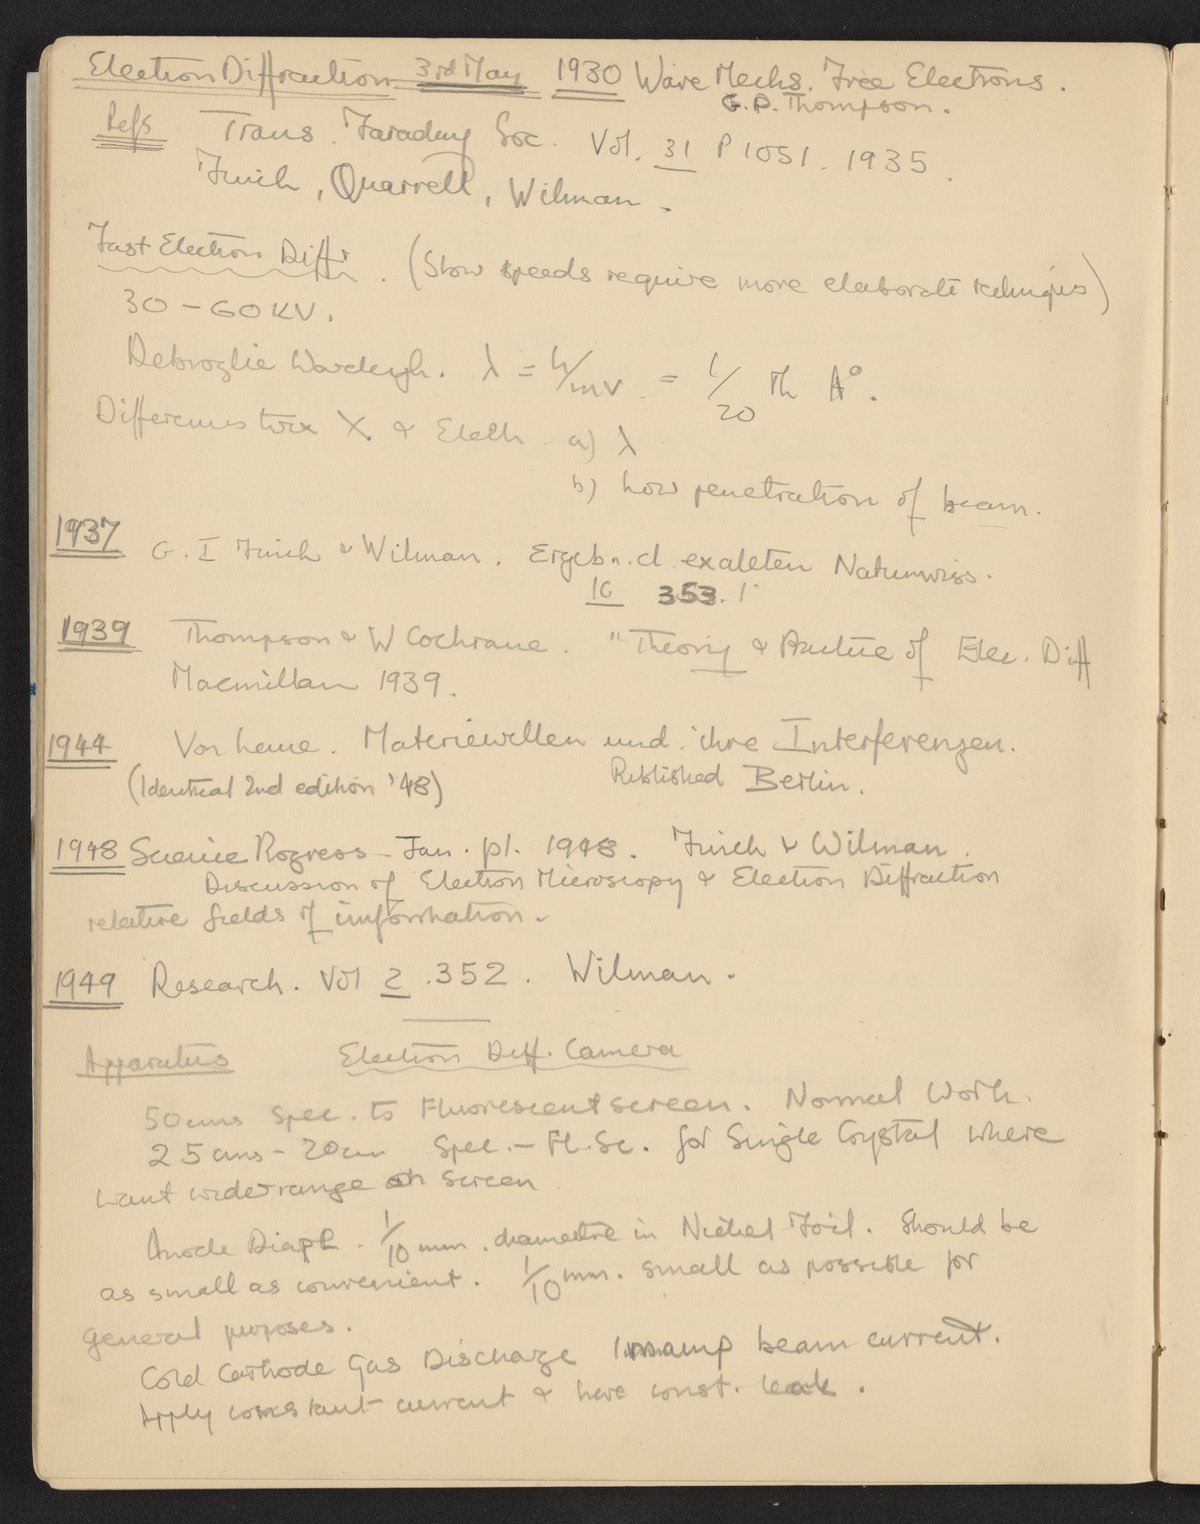 Electron Diffraction 3rd May 1930 Wave Mechs. Free Electrons.
G.P. Thompson.
Refs Trans. Faraday Soc. Vol. 31 P 1051. 1935.
Finch, Quarrell, Wilman.
Fast Electron Diffr. (Slow speeds require more elaborate techniques)
30-60 KV.
Debroglie Wavelength. λ = h/mv = 1/20 th A°.
Differences twixt X & Electn a) λ
b) Low penetration of beam.
1937 G. I Finch & Wilman. Ergebn. d. exakten Naturwiss.
16 353.
1939 Thompson & W Cochrane. "Theory & Practice of Elec. Diff
Macmillan 1939.
1944 Von Laue. Materiewellen und ihre Interferenzen.
(Identical 2nd edition '48) Published Berlin.
1948 Science Progress Jan. p1. 1948. Finch & Wilman.
Discussion of Electron Microscopy & Electron Diffraction
relative fields of information.
1949 Research. Vol 2. 352. Wilman.
Apparatus Electron Diff. Camera
50cms Spec. to Fluorescent screen. Normal Work.
25cms - 20cm Spec. - Fl. Sc. for Single Crystal where
want wider range on screen
Anode Diaph. 1/10 mm. diametre in Nickel Foil. Should be
as small as convenient. 1/10 mm. small as possible for
general purposes.
Cold Cathode Gas Discharge 1 mamp beam current.
Apply constant current & have const. leak.